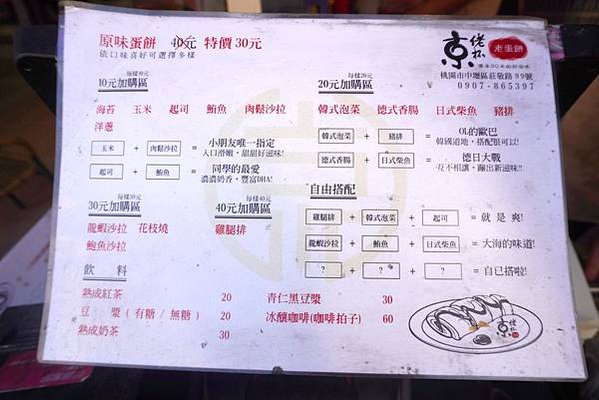 原味蛋餅 40元 特價30元
依口味喜好可選擇多樣
京佬杯 老蛋餅
桃園市中壢區莊敬路99號
0907-865397
每樣10元
10元加購區
海苔 玉米 起司 鮪魚 肉鬆沙拉
洋蔥
玉米 + 肉鬆沙拉 = 小朋友唯一指定
入口滑嫩，甜甜好滋味!
起司 + 鮪魚 = 同學的最愛
濃濃奶香，豐富DHA!
每樣20元
20元加購區
韓式泡菜 德式香腸 日式柴魚 豬排
韓式泡菜 + 豬排 = OL的歐巴
韓國道地，搭配很可以!
德式香腸 + 日式柴魚 = 德日大戰
互不相讓，蹦出新滋味!!
每樣30元
30元加購區
龍蝦沙拉 花枝燒
鮑魚沙拉
每樣40元
40元加購區
雞腿排
自由搭配
雞腿排 + 韓式泡菜 + 起司 = 就是爽!
龍蝦沙拉 + 鮪魚 + 日式柴魚 = 大海的味道!
? + ? + ? = 自己搭啦!
飲 料
熟成紅茶 20
豆 漿(有糖/無糖) 20
熟成奶茶 30
青仁黑豆漿 30
冰釀咖啡(咖啡拍子) 60